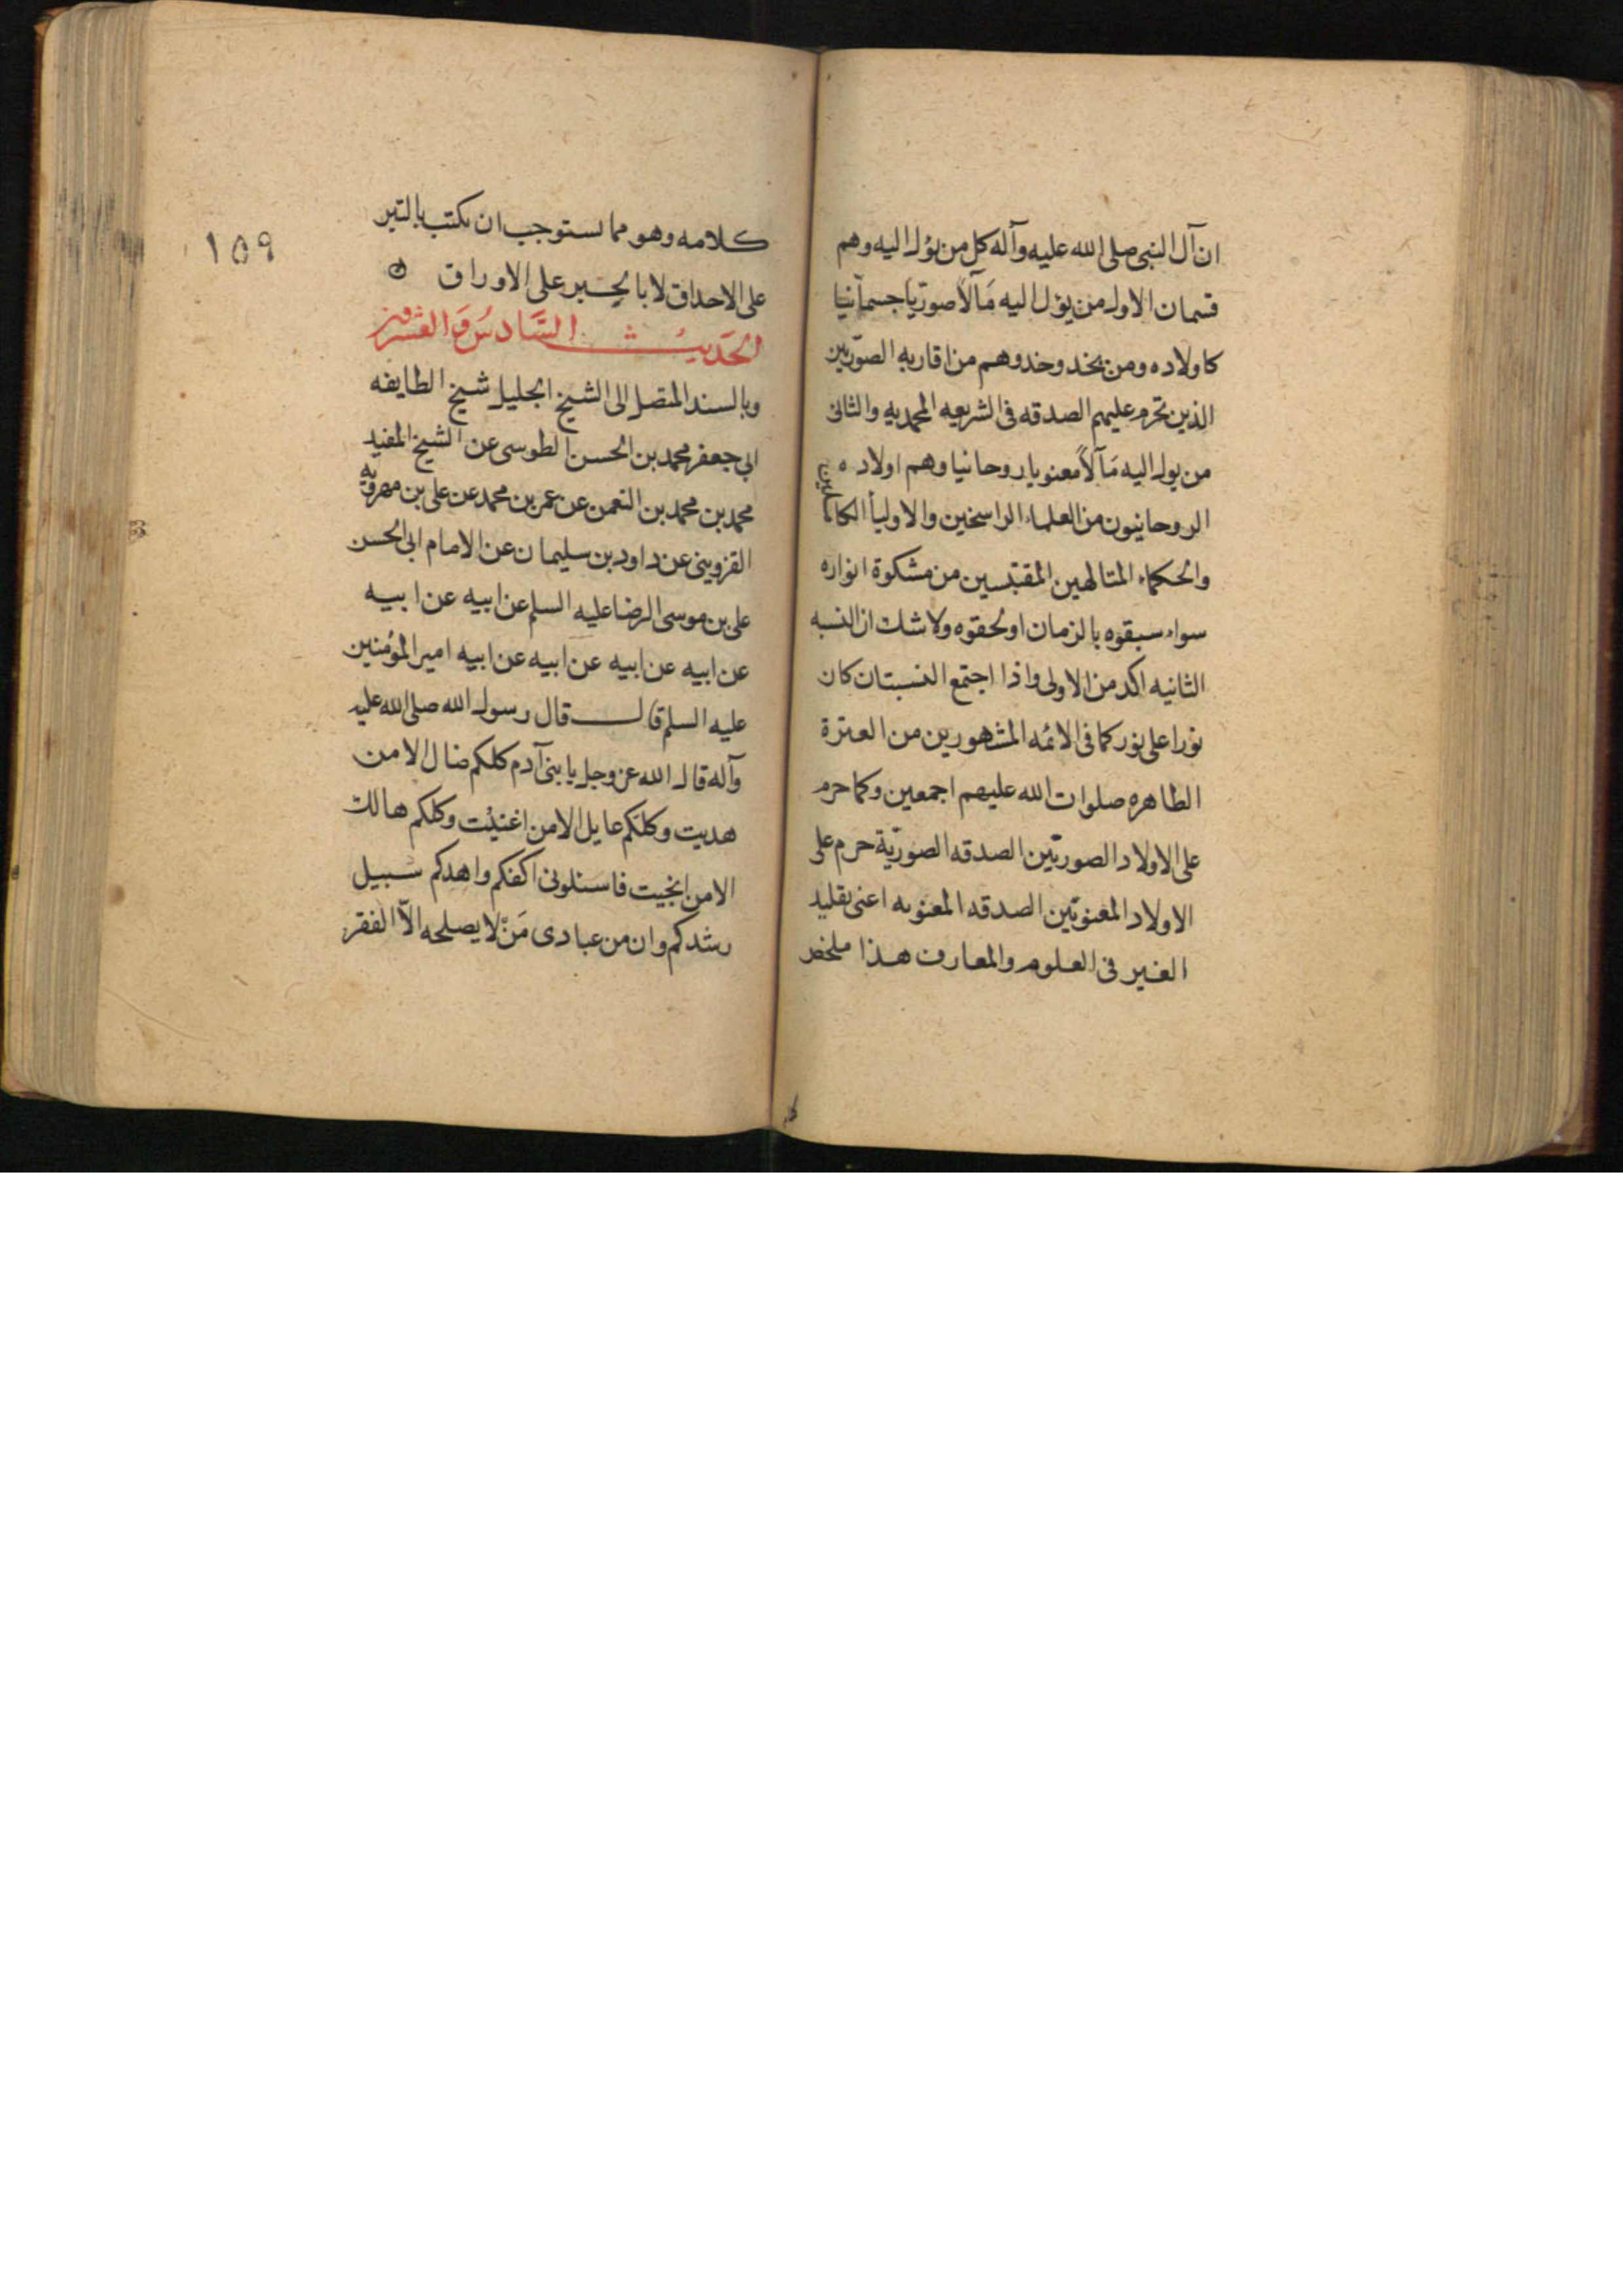 ان آل النبي صلى الله عليه وآله كل من يؤل اليه وهم
قسمان الاول من يؤل اليه مَآلاً صوريّا جسمانيا
كاولاده ومن يحذو حذوهم من اقاربه الصوّريين
الذين تحرم عليهم الصدقه فى الشريعه المحمديه والثانى
من يول اليه مَآلاً معنويا روحانيا وهم اولاده
الروحانيون من العلماء الراسخين والاولياَ الكاملين
والحكماء المتالهين المقتبسين من مشكوة انواره
سواء سبقوه بالزمان او لحقوه ولا شك ان النسبه
الثانيه اكد من الاولى واذا اجتمع النسبتان كان
نورا على نور كما فى الائمه المشهورين من العترة
الطاهره صلوات الله عليهم اجمعين وكما حرم
على الاولاد الصوريّين الصدقه الصوريّة حرم على
الاولاد المعنويّين الصدقه المعنويه اعنى تقليد
الغير فى العلوم والمعارف هذا ملخص
١٥٩
كلامه وهو مما يستوجب ان يكتب بالتبر
على الاحداق لا بالحِبر على الاوراق ه
الحَديثُ السَّادسُ وَالعشرون
وبالسند المتصل الى الشيخ الجليل شيخ الطايفه
ابى جعفر محمد بن الحسن الطوسى عن الشيخ المفيد
محمد بن محمد بن النعمن عن عمر بن محمد عن على بن مهرويه
القزوينى عن داود بن سليمان عن الامام ابى الحسن
على بن موسى الرضا عليه السلم عن ابيه عن ابيه
عن ابيه عن ابيه عن ابيه عن ابيه امير المؤمنين
عليه السلم قال قال رسول الله صلى الله عليه
وآله قال الله عز وجل يا بنى آدم كلكم ضال الا من
هديت وكلكم عايل الا من اغنيْت وكلكم هالك
الا من انجيت فاسئلونى اكفكم واهدكم سبيل
رشدكم وان من عبادى مَنْ لا يصلحه الاّ الفقر